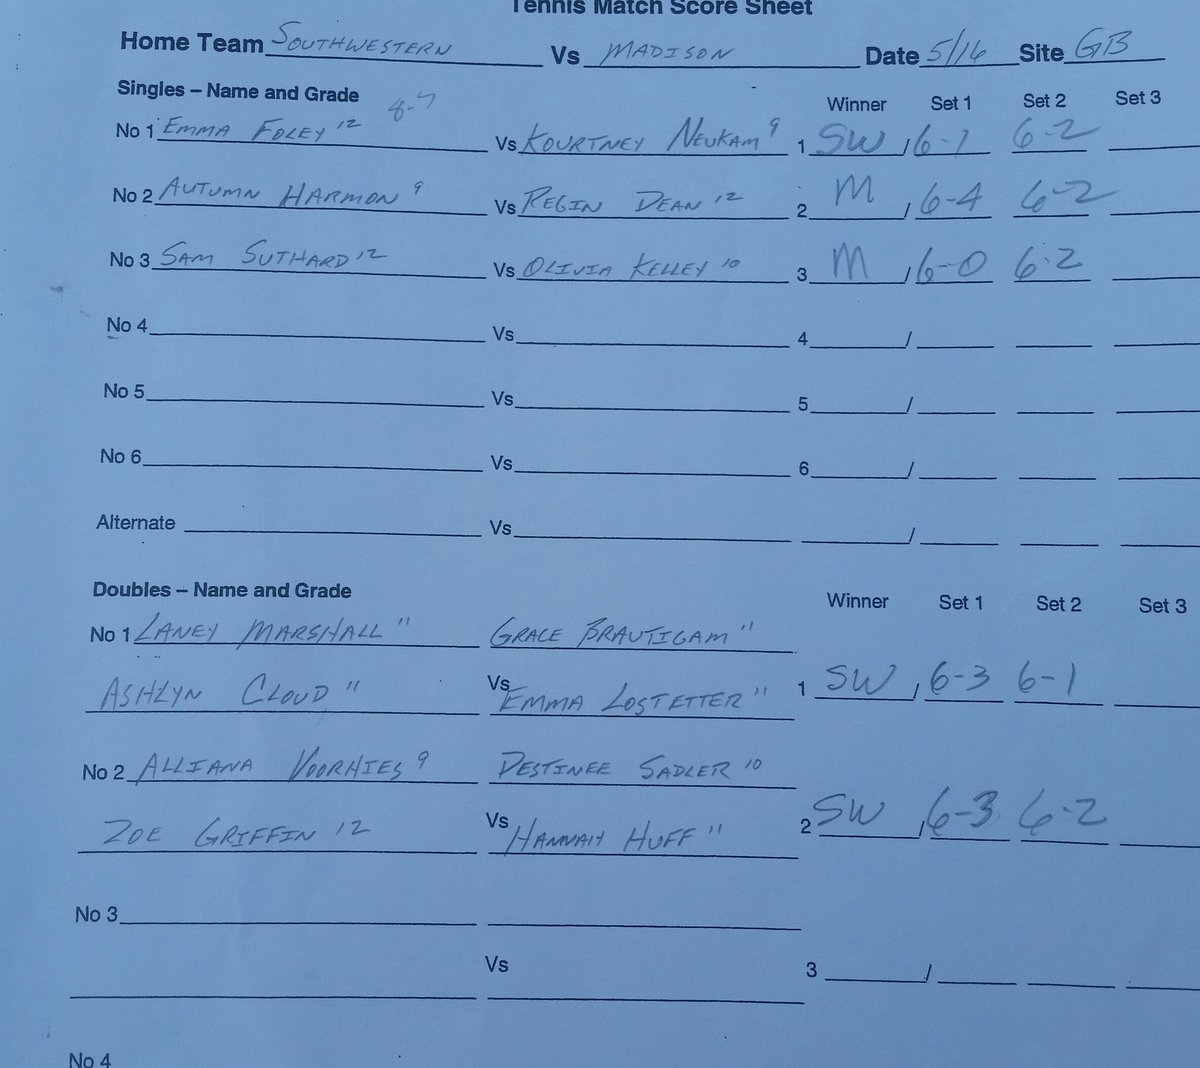 Tennis Match Score Sheet
Home Team SOUTHWESTERN Vs MADISON Date 5/16 Site GB
Singles – Name and Grade 8-7 Winner Set 1 Set 2 Set 3
No 1 EMMA FOLEY 12 Vs KOURTNEY NEUKAM 9 1 SW / 6-1 6-2
No 2 AUTUMN HARMON 9 Vs REGIN DEAN 12 2 M / 6-4 6-2
No 3 SAM SUTHARD 12 Vs OLIVIA KELLEY 10 3 M / 6-0 6-2
No 4 Vs 4 /
No 5 Vs 5 /
No 6 Vs 6 /
Alternate Vs /
Doubles – Name and Grade Winner Set 1 Set 2 Set 3
No 1 LANEY MARSHALL 11 GRACE BRAUTIGAM 11
ASHLYN CLOUD 11 Vs EMMA LOSTETTER 11 1 SW / 6-3 6-1
No 2 ALLIANA VOORHIES 9 DESTINEE SADLER 10
ZOE GRIFFIN 12 Vs HANNAH HUFF 11 2 SW / 6-3 6-2
No 3
Vs 3 /
No 4